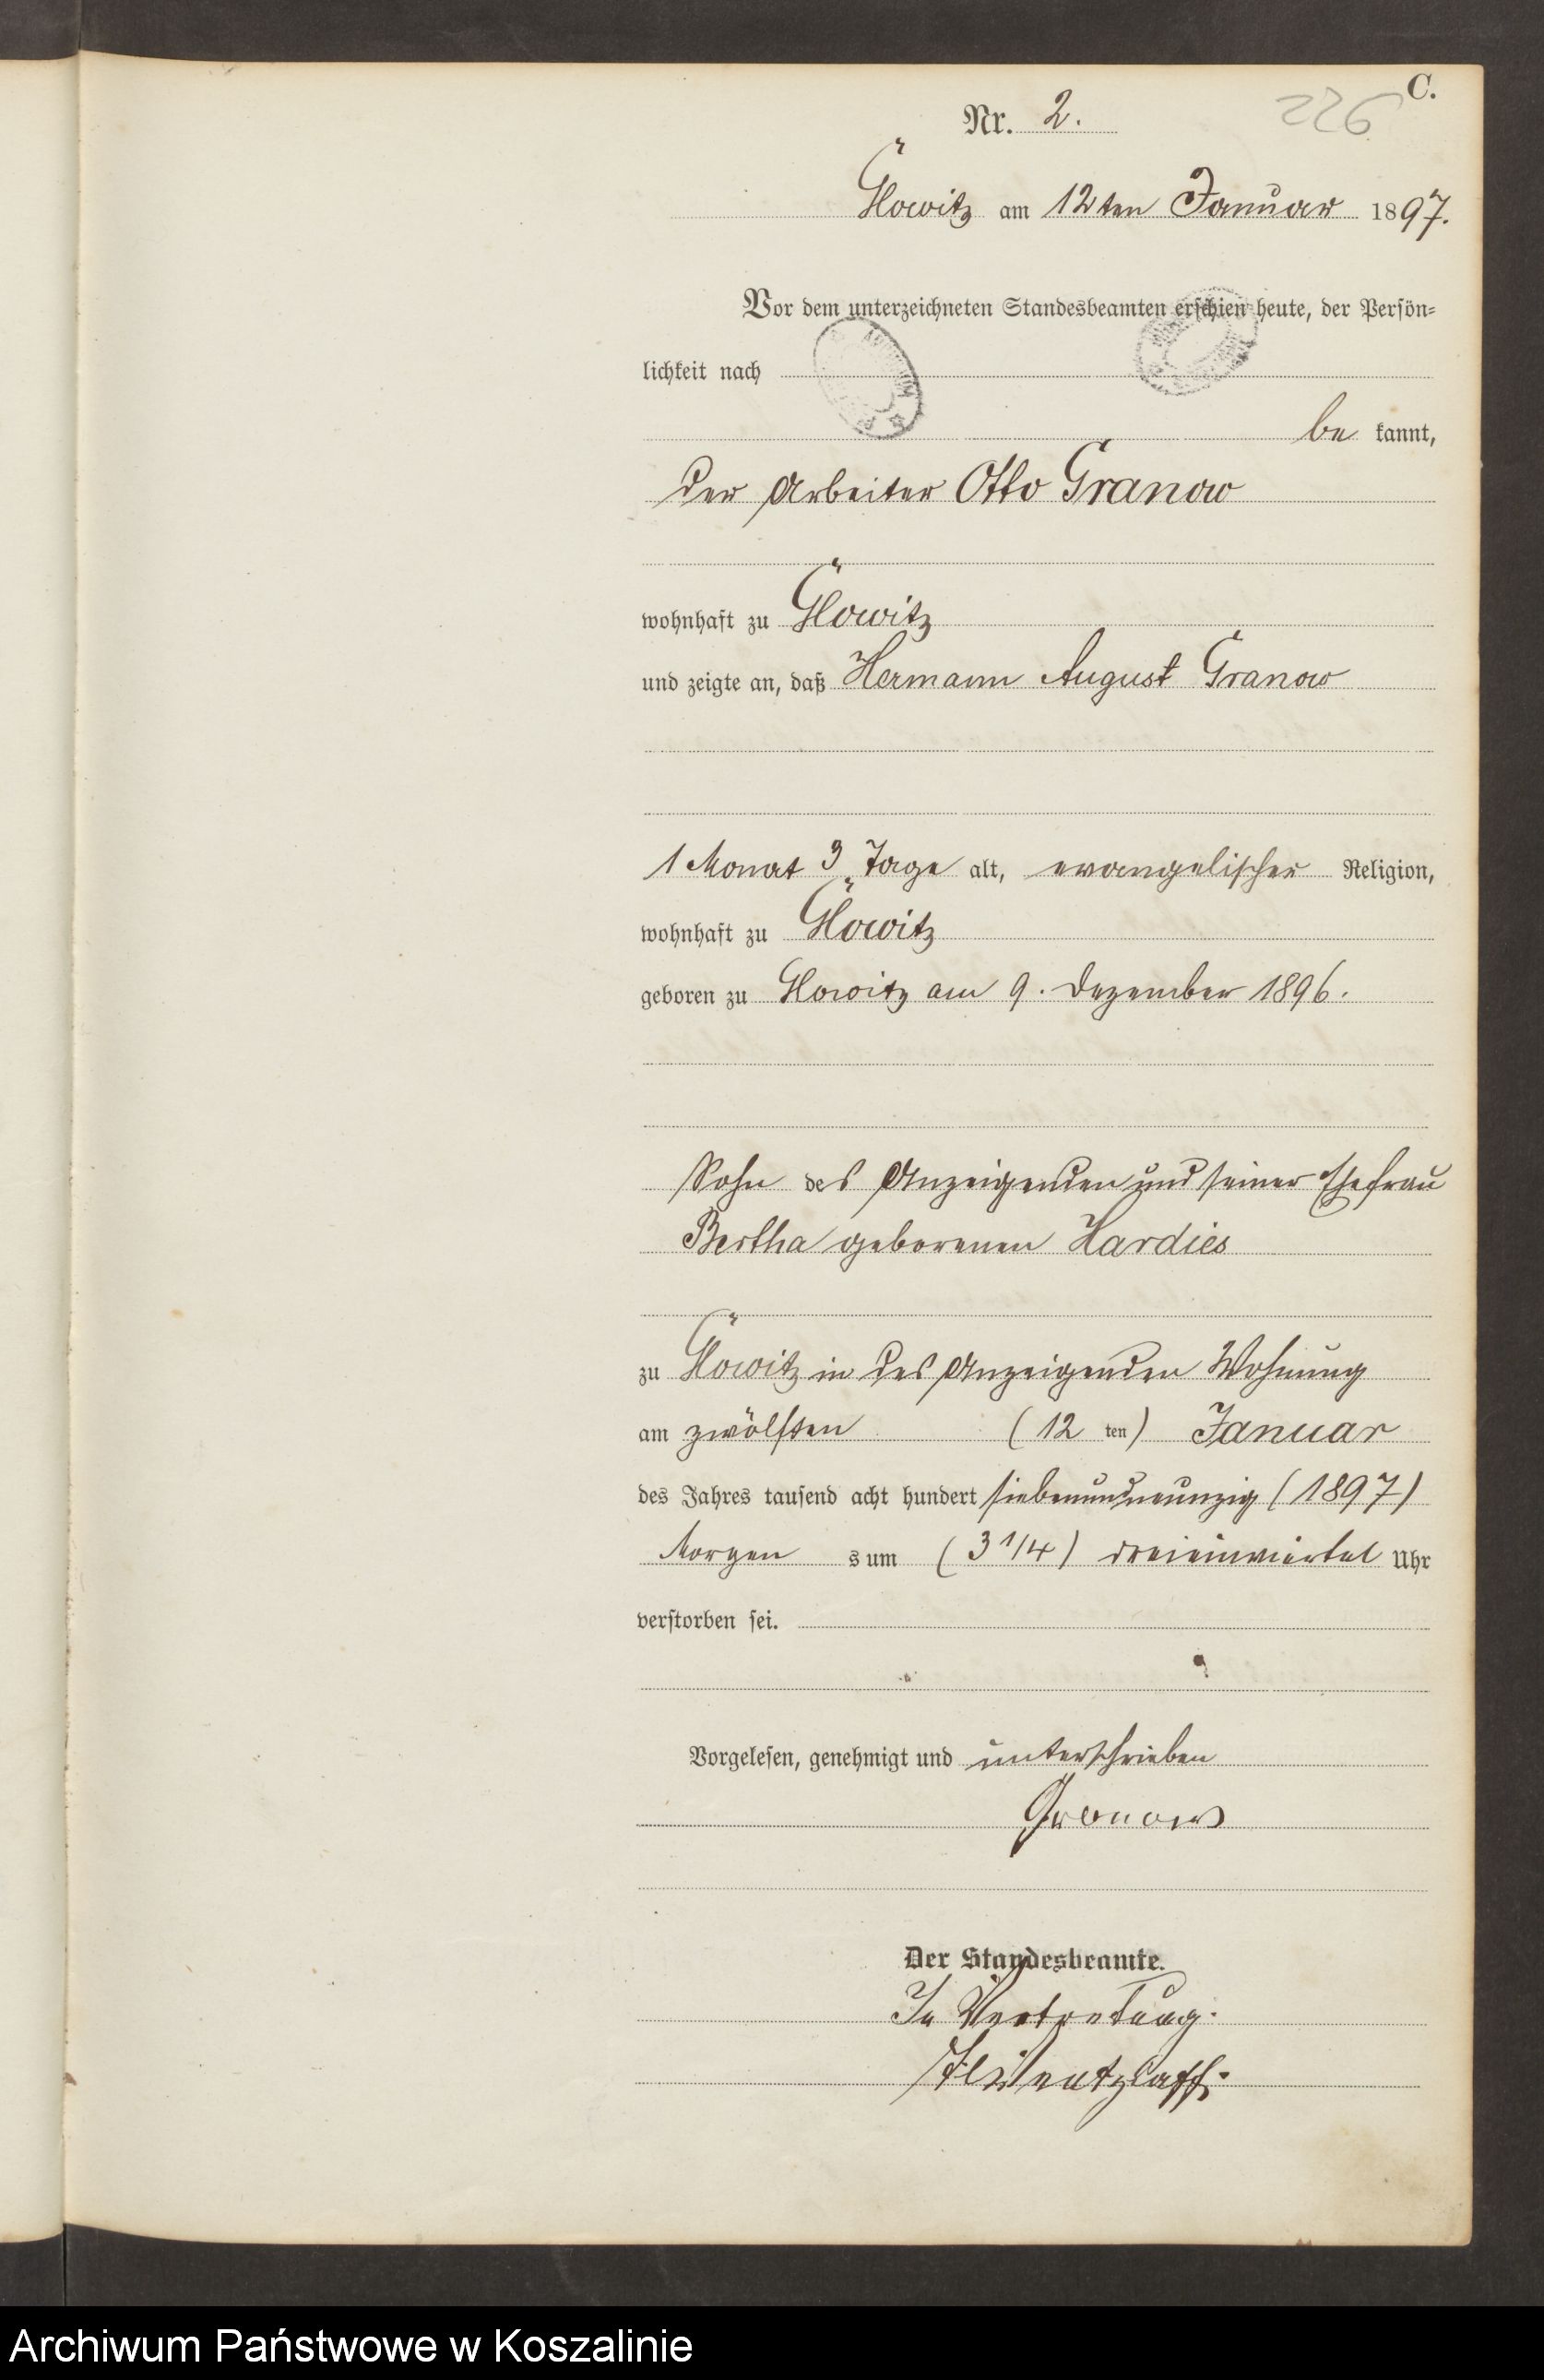 C.
226
Nr. 2.
Glowitz am 12ten Januar 1897.
Vor dem unterzeichneten Standesbeamten erschien heute, der Persön-
lichkeit nach
be kannt,
der Arbeiter Otto Granow
wohnhaft zu Glowitz
und zeigte an, daß Hermann August Granow
1 Monat 3 Tage alt, evangelischer Religion,
wohnhaft zu Glowitz
geboren zu Glowitz am 9. Dezember 1896.
Sohn des Anzeigenden und seiner Ehefrau
Bertha geborenen Hardies
zu Glowitz in des Anzeigenden Wohnung
am zwölften (12 ten) Januar
des Jahres tausend acht hundert siebenundneunzig (1897)
Morgen s um (3 1/4) dreieinviertel Uhr
verstorben sei.
Vorgelesen, genehmigt und unterschrieben
Granow
Der Standesbeamte.
In Vertretung.
Archiwum Państwowe w Koszalinie